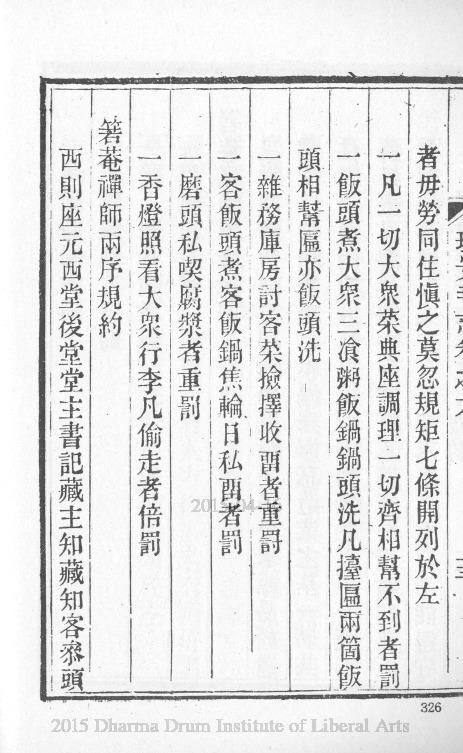 者毋勞同住慎之莫忽規矩七條開列於左
一凡一切大衆菜典座調理一切齊相幫不到者罰
一飯頭煮大衆三飡粥飯鍋鍋頭洗凡擡匾兩箇飯
頭相幫匾亦飯頭洗
一雜務庫房討客菜撿擇收畱者重罰
一客飯頭煮客飯鍋焦輪日私畱者罰
一磨頭私喫腐漿者重罰
一香燈照看大衆行李凡偷走者倍罰
箬菴禪師兩序規約
西則座元西堂後堂堂主書記藏主知藏知客叅頭
326
2015 Dharma Drum Institute of Liberal Arts